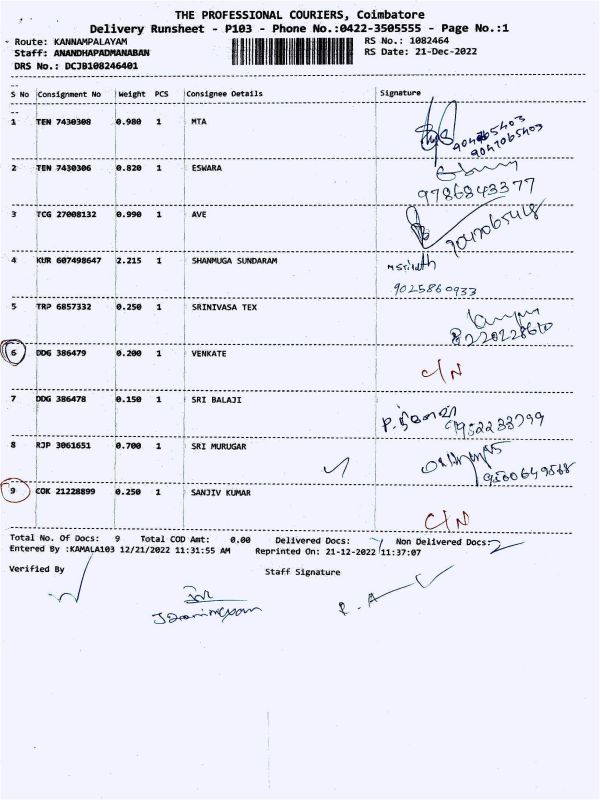 THE PROFESSIONAL COURIERS, Coimbatore
Delivery Runsheet - P103 - Phone No.:0422-3505555 - Page No.:1
Route: KANNAMPALAYAM RS No.: 1082464
Staff: ANANDHAPADMANABAN RS Date: 21-Dec-2022
DRS No.: DCJB108246401
S No Consignment No Weight PCS Consignee Details Signature
1 TEN 7430308 0.980 1 MTA
9047065403
2 TEN 7430306 0.820 1 ESWARA
9786843377
3 TCG 27008132 0.990 1 AVE
4 KUR 607498647 2.215 1 SHANMUGA SUNDARAM
9025860933
5 TRP 6857332 0.250 1 SRINIVASA TEX
6 DDG 386479 0.200 1 VENKATE
C/N
7 DDG 386478 0.150 1 SRI BALAJI
8 RJP 3061651 0.700 1 SRI MURUGAR
9 COK 21228899 0.250 1 SANJIV KUMAR
C/N
Total No. Of Docs: 9 Total COD Amt: 0.00 Delivered Docs: 7 Non Delivered Docs: 2
Entered By :KAMALA103 12/21/2022 11:31:55 AM Reprinted On: 21-12-2022 11:37:07
Verified By Staff Signature